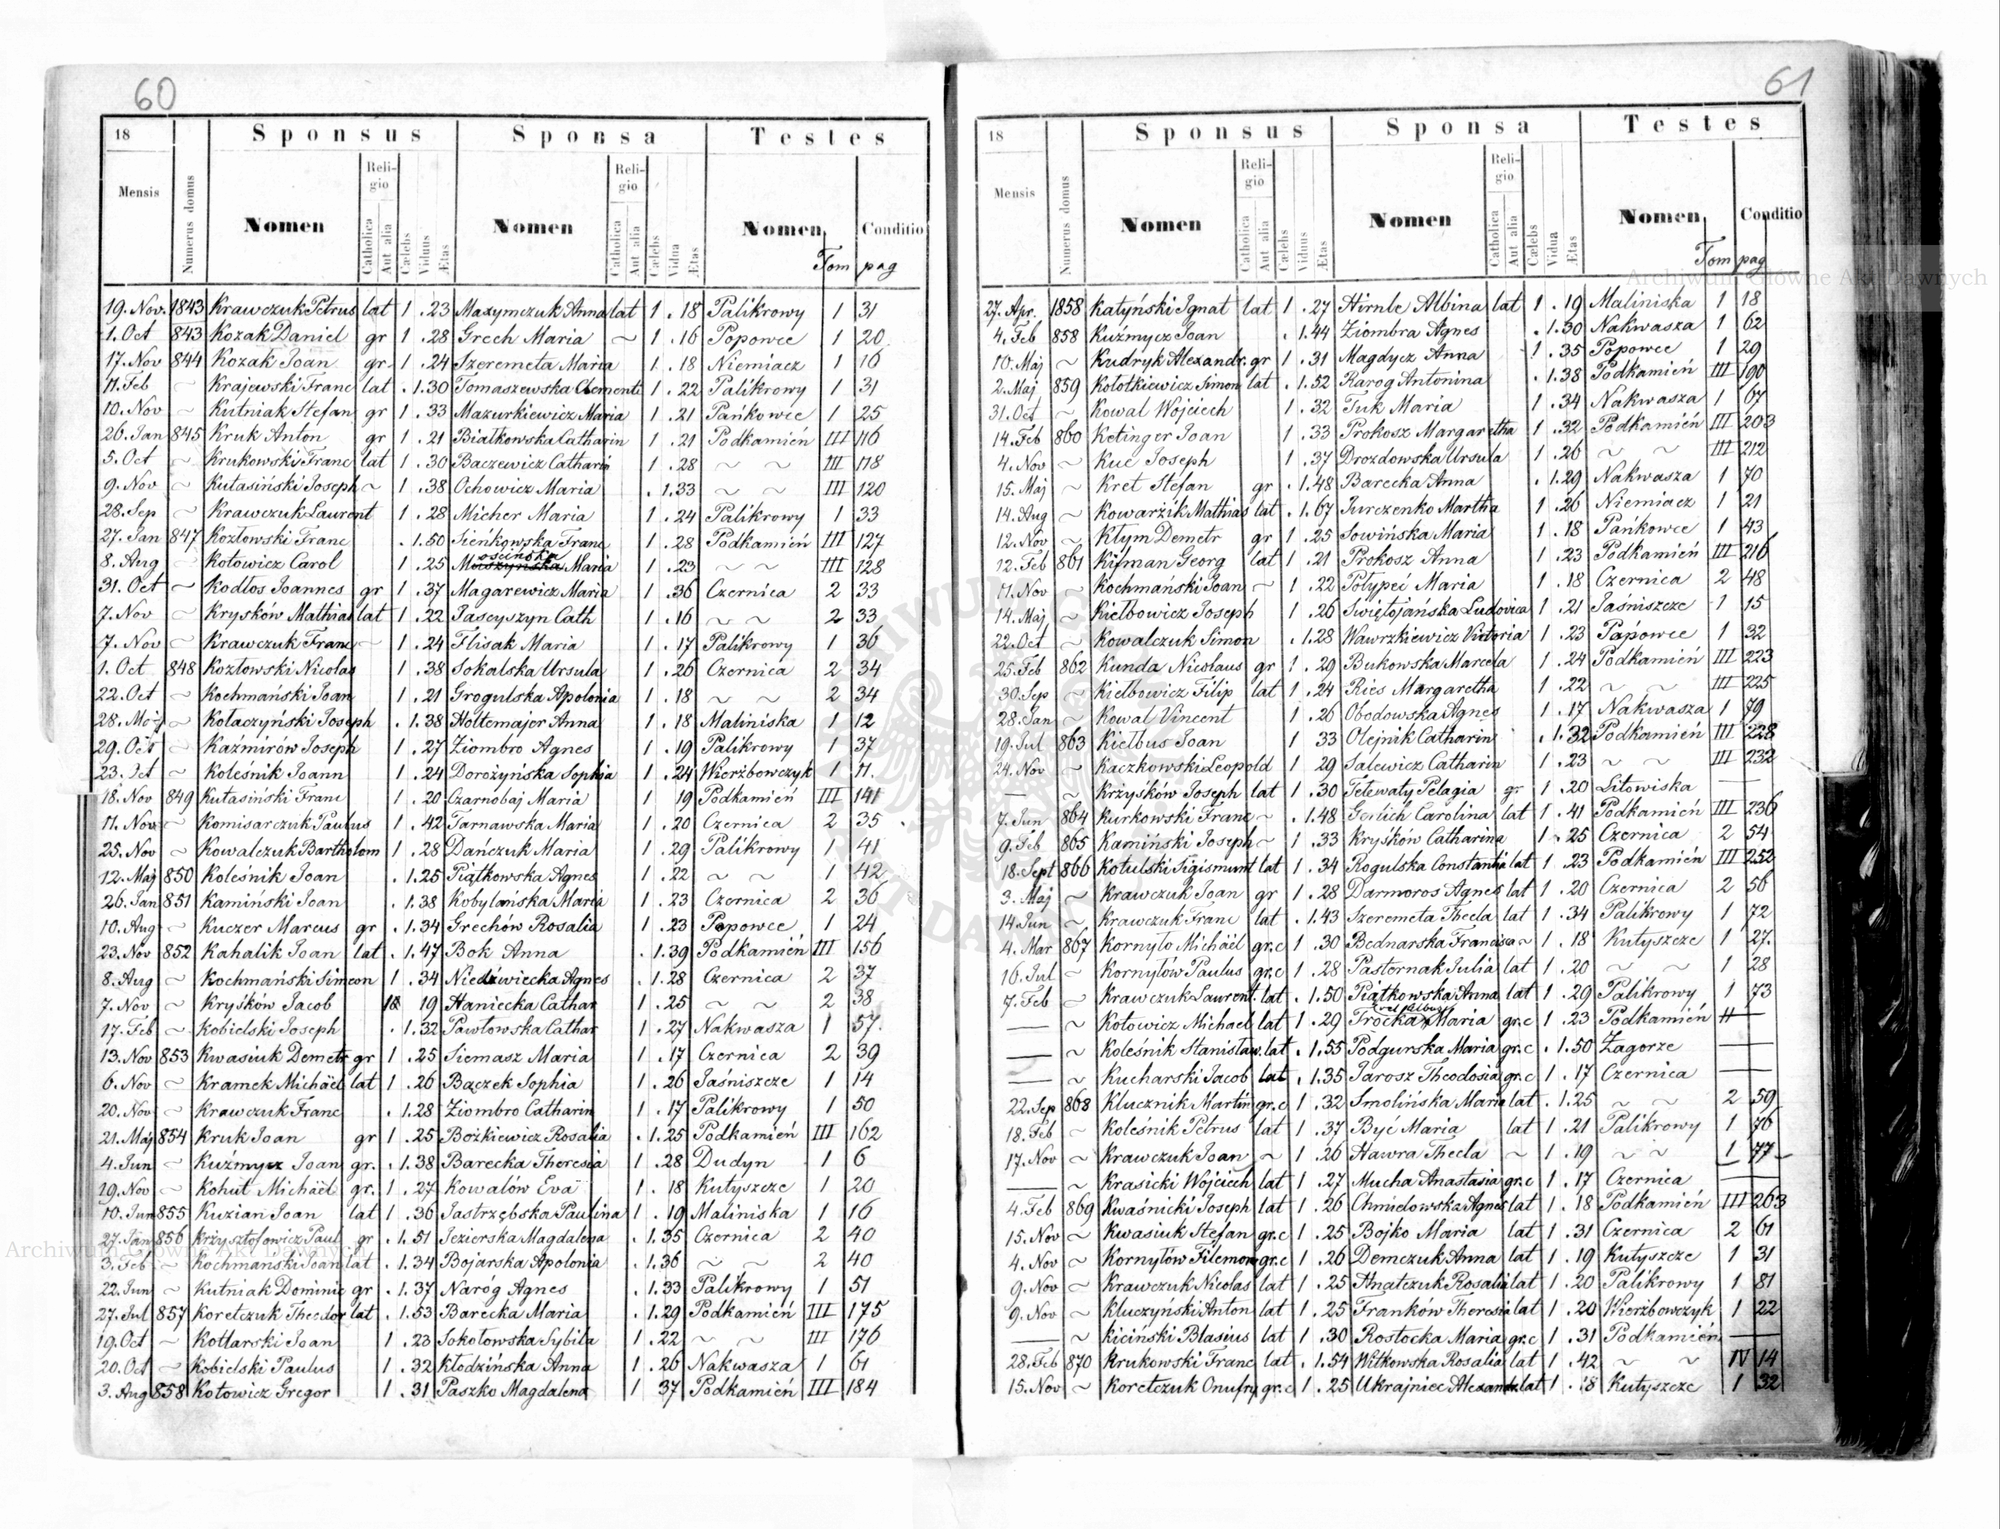 60
18 Sponsus Sponsa Testes
Mensis Numerus domus Nomen Religio Catholica Aut alia Cælebs Viduus Ætas Nomen Religio Catholica Aut alia Cælebs Vidua Ætas Nomen Conditio
Tom pag
19. Nov. 1843 Krawczuk Petrus lat 1 . 23 Maxymczuk Anna lat 1 . 18 Palikrowy 1 31
1. Oct 843 Kozak Daniel gr 1 . 28 Grech Maria ~ 1 . 16 Popowce 1 20
17. Nov 844 Kozak Joan gr 1 . 24 Szeremeta Maria 1 . 18 Niemiacz 1 16
11. Feb ~ Krajewski Franc lat . 1. 30 Tomaszewska Clementi 1 . 22 Palikrowy 1 31
10. Nov ~ Kutniak Stefan gr 1 . 33 Mazurkiewicz Maria 1 . 21 Pańkowce 1 25
26. Jan 845 Kruk Anton gr 1 . 21 Białkowska Catharin 1 . 21 Podkamień III 116
5. Oct ~ Krukowski Franc lat 1 . 30 Baczewicz Catharin 1 . 28 ~ ~ III 118
9. Nov ~ Kutasiński Joseph ~ 1 . 38 Ochowicz Maria . 1. 33 ~ ~ III 120
28. Sep ~ Krawczuk Laurent 1 . 28 Micher Maria 1 . 24 Palikrowy 1 33
27. Jan 847 Kozłowski Franc . 1. 50 Sienkowska Franc 1 . 28 Podkamień III 127
8. Aug ~ Kotowicz Carol 1 . 25 Maria 1 . 23 ~ ~ III 128
31. Oct ~ Kodlos Joannes gr 1 . 37 Magarewicz Maria 1 . 36 Czernica 2 33
7. Nov ~ Krysków Mathias lat 1 . 22 Jasceyszyn Cath 1 . 16 ~ ~ 2 33
7. Nov ~ Krawczuk Franc ~ 1 . 24 Flisak Maria 1 . 17 Palikrowy 1 36
1. Oct 848 Kozłowski Nicolas 1 . 38 Sokalska Ursula 1 . 26 Czernica 2 34
22. Oct ~ Kochmański Joan 1 . 21 Grogulska Apolonia 1 . 18 ~ ~ 2 34
28. Maj ~ Kołaczyński Joseph . 1. 38 Holtemajer Anna 1 . 18 Maliniska 1 12
29. Oct ~ Kaźmirów Joseph 1 . 27 Ziombro Agnes 1 . 19 Palikrowy 1 37
23. Oct ~ Koleśnik Joann 1 . 24 Dorożyńska Sophia 1 . 24 Wierzbowczyk 1 11.
18. Nov 849 Kutasiński Franc 1 . 20 Czarnobaj Maria 1 19 Podkamień III 141
11. Nov ~ Komisarczuk Paulus 1 . 42 Tarnawska Maria 1 . 20 Czernica 2 35
25. Nov ~ Kowalczuk Bartholom 1 . 28 Dańczuk Maria 1 . 29 Palikrowy 1 41
12. Maj 850 Koleśnik Joan . 1. 25 Piątkowska Agnes 1 . 22 ~ ~ 1 42
26. Jan 851 Kamiński Joan . 1. 38 Kobylańska Maria 1 . 23 Czernica 2 36
10. Aug ~ Kuczer Marcus gr . 1. 34 Grechów Rosalia 1 . 23 Popowce 1 24
23. Nov 852 Kahalik Joan lat . 1. 47 Bok Anna . 1. 39 Podkamień III 156
8. Aug ~ Kochmański Simeon 1 . 34 Niedźwiecka Agnes . 1. 28 Czernica 2 37
7. Nov ~ Kryśków Jacob 1 19 Haniecka Cathar 1 . 25 ~ ~ 2 38
17. Feb ~ Kobielski Joseph . 1. 32 Pawłowska Cathar 1 . 27 Nakwasza 1 57.
13. Nov 853 Kwasiuk Demetr gr 1 . 25 Siemasz Maria 1 . 17 Czernica 2 39
6. Nov ~ Kramek Michäel lat 1 . 26 Bączek Sophia 1 . 26 Jaśniszcze 1 14
20. Nov ~ Krawczuk Franc . 1. 28 Ziombro Catharin 1 . 17 Palikrowy 1 50
21. Maj 854 Kruk Joan gr 1 . 25 Bożkiewicz Rosalia . 1. 25 Podkamień III 162
4. Jun ~ Kuźmycz Joan gr. . 1. 38 Barecka Theresia 1 . 28 Dudyn 1 6
19. Nov ~ Kohut Michäel gr. 1 . 27 Kowalów Eva 1 . 18 Kutyszcze 1 20
10. Jun 855 Kuzian Joan lat 1 . 36 Jastrzębska Paulina 1 . 19 Maliniska 1 16
27. Jan 856 Krzysztofowicz Paul gr . 1. 51 Jezierska Magdalena . 1. 35 Czernica 2 40
3. Feb ~ Kochmański Joan lat . 1. 34 Bojarska Apolonia . 1. 36 ~ ~ 2 40
22. Jun ~ Kutniak Dominic gr . 1. 37 Naróg Agnes . 1. 33 Palikrowy 1 51
27. Jul 857 Koretczuk Theodor lat . 1. 53 Barecka Maria . 1. 29 Podkamień III 175
19. Oct ~ Kotlarski Joan 1 . 23 Sokołowska Sybila 1 . 22 ~ ~ III 176
20. Oct ~ Kobielski Paulus 1 . 32 Kłodzińska Anna 1 . 26 Nakwasza 1 61
3. Aug 858 Kotowicz Gregor 1 . 31 Paszko Magdalena 1 37 Podkamień III 184
61
18 Sponsus Sponsa Testes
Mensis Numerus domus Nomen Religio Catholica Aut alia Cælebs Viduus Ætas Nomen Religio Catholica Aut alia Cælebs Vidua Ætas Nomen Conditio
Tom pag
27. Apr. 1858 Katyński Ignat lat 1 . 27 Hirnle Albina lat 1 . 19 Maliniska 1 18
4. Feb 858 Kuźmycz Joan . 1. 44 Ziombra Agnes . 1. 30 Nakwasza 1 62
10. Maj ~ Kudryk Alexandr. gr 1 . 31 Magdycz Anna 1 . 35 Popowce 1 29
2. Maj 859 Kołotkiewicz Simon lat . 1. 52 Rarog Antonina . 1. 38 Podkamień III 190
31. Oct ~ Kowal Wojciech 1 . 32 Fuk Maria 1 . 34 Nakwasza 1 67
14. Feb 860 Ketinger Joan 1 . 33 Prokosz Margaretha 1 . 32 Podkamień III 203
4. Nov ~ Kuc Joseph 1 . 37 Drozdowska Ursula 1 . 26 ~ ~ III 212
15. Maj ~ Kret Stefan gr . 1. 48 Barecka Anna . 1. 29 Nakwasza 1 70
14. Aug ~ Kowarzik Mathias lat . 1. 67 Jurczenko Martha 1 . 26 Niemiacz 1 21
12. Nov ~ Kłym Demetr gr 1 . 25 Sowińska Maria 1 . 18 Pańkowce 1 43
12. Feb 861 Kifman Georg lat 1 . 21 Prokosz Anna 1 . 23 Podkamień III 216
17. Nov ~ Kochmański Joan ~ 1 . 22 Potypeć Maria 1 . 18 Czernica 2 48
14. Maj ~ Kiełbowicz Joseph 1 . 26 Świętojańska Ludovica 1 . 21 Jaśniszcze 1 15
22. Oct ~ Kowalczuk Simon . 1. 28 Wawrzkiewicz Victoria 1 . 23 Papowce 1 32
25. Feb 862 Kunda Nicolaus gr 1 . 29 Bukowska Marcela 1 . 24 Podkamień III 223
30. Sep ~ Kiełbowicz Filip lat 1 . 24 Ries Margaretha 1 . 22 ~ ~ III 225
28. Jan ~ Kowal Vincent 1 . 26 Obodowska Agnes 1 . 17 Nakwasza 1 79
19. Jul 863 Kiełbus Joan 1 33 Olejnik Catharin . 1. 32 Podkamień III 228
24. Nov ~ Kaczkowski Leopold 1 29 Salewicz Catharin 1 . 23 ~ ~ III 232
— ~ Krzysków Joseph lat 1 . 30 Telewaty Pelagia gr 1 . 20 Litowiska —
7. Jun 864 Kurkowski Franc ~ . 1. 48 Gerlich Carolina lat 1 . 41 Podkamień III 236
9. Feb 865 Kamiński Joseph ~ 1 . 33 Kryśków Catharina 1 . 25 Czernica 2 54
18. Sept 866 Kotulski Sigismunt lat 1 . 34 Rogulska Constantia lat 1 . 23 Podkamień III 252
3. Maj ~ Krawczuk Joan gr 1 . 28 Darmoros Agnes lat 1 . 20 Czernica 2 56
14. Jun ~ Krawczuk Franc lat . 1. 43 Szeremeta Thecla lat 1 . 34 Palikrowy 1 72
4. Mar 867 Kornyło Michäel gr.c 1 . 30 Bednarska Francisca ~ 1 . 18 Kutyszcze 1 27.
16. Jul ~ Kornylów Paulus gr.c 1 . 28 Pasternak Julia lat 1 . 20 ~ ~ 1 28
7. Feb ~ Krawczuk Laurent. lat . 1. 50 Piątkowska Anna lat 1 . 29 Palikrowy 1 73
— ~ Kotowicz Michael lat 1 . 29 Trocka Maria gr.c 1 . 23 Podkamień —
— ~ Koleśnik Stanisław. lat . 1. 55 Podgurska Maria gr.c . 1. 50 Zagorze —
— ~ Kucharski Jacob lat . 1. 35 Jarosz Theodosia gr.c 1 . 17 Czernica —
22. Sep 868 Klucznik Martin gr.c 1 . 32 Smolińska Maria lat . 1. 25 ~ ~ 2 59
18. Feb ~ Koleśnik Petrus lat 1 . 37 Być Maria lat 1 . 21 Palikrowy 1 76
17. Nov ~ Krawczuk Joan ~ 1 . 26 Hawra Thecla ~ 1 . 19 ~ ~ 1 77
— ~ Krasicki Wojciech lat 1 . 27 Mucha Anastasia gr.c 1 . 17 Czernica —
4. Feb 869 Kwaśnicki Joseph lat 1 . 26 Chmielowska Agnes lat 1 . 18 Podkamień III 263
15. Nov ~ Kwasiuk Stefan gr.c 1 . 25 Bojko Maria lat 1 . 31 Czernica 2 61
4. Nov ~ Kornylów Filemon gr.c 1 . 26 Demczuk Anna lat 1 . 19 Kutyszcze 1 31
9. Nov ~ Krawczuk Nicolas lat 1 . 25 Anatczuk Rosalia lat 1 . 20 Palikrowy 1 81
9. Nov ~ Kluczyński Anton lat 1 . 25 Franków Theresia lat 1 . 20 Wierzbowczyk 1 22
— ~ Kiciński Blasius lat 1 . 30 Rostocka Maria gr.c 1 . 31 Podkamień —
28. Feb 870 Krukowski Franc lat . 1. 54 Witkowska Rosalia lat 1 . 42 ~ ~ IV 14
15. Nov ~ Koretczuk Onufry gr.c 1 . 25 Ukrajniec Alexandr. lat 1 . 18 Kutyszcze 1 32
Archiwum Główne Akt Dawnych
Archiwum Główne Akt Dawnych